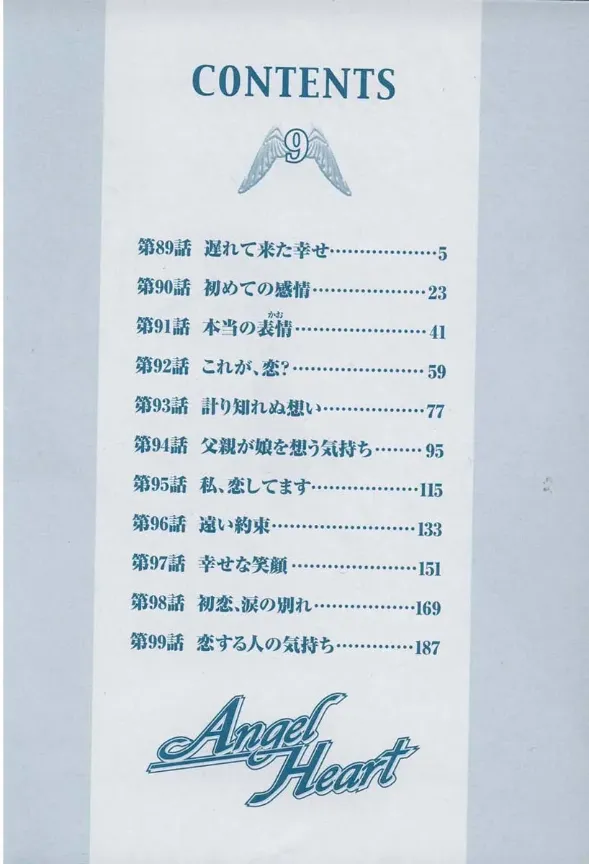 CONTENTS
9
第89話 遅れて来た幸せ………………5
第90話 初めての感情…………………23
第91話 本当の表情(かお)…………………41
第92話 これが、恋?…………………59
第93話 計り知れぬ想い………………77
第94話 父親が娘を想う気持ち………95
第95話 私、恋してます………………115
第96話 遠い約束………………………133
第97話 幸せな笑顔……………………151
第98話 初恋、涙の別れ………………169
第99話 恋する人の気持ち……………187
Angel
Heart